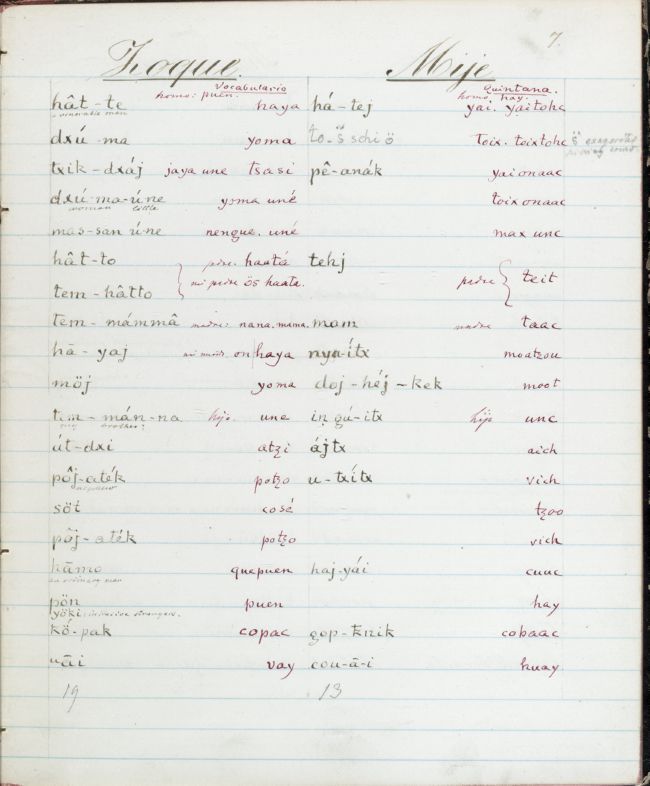 7.
Zoque. Mije
Vocabulario Quintana.
homo: puen. homo. hay.
hât-te haya há-tej yai. yaitohc
a venerable man
dxú-ma yoma to-s̈schiö toix. toixtohc s̈ exagerated
txik-dxáj jaya une tsasi pê-anák yaionaac
dxú-ma-ú-ne yoma uné toixonaac
woman little
mas-san ú-ne nengue. uné max unc
hât-to pdre. haatá tehj
tem-hâtto mi pedre ös haata. pedre teit
tem-mámmâ madre: nana. mama. mam madre taac
hā-yaj on haya nya-ítx moatzou
möj yoma doj-héj-kek moot
tem-mán-na hijo une in gú-itx hijo unc
my brother?
út-dxi atzi ájtx aich
pôj-aték potzo u-txítx vich
söt cosé tzoo
pôj-aték potzo vich
hāmo quepuen haj-yái cuuc
an ordinary man
pön puen hay
yöki:
kö-pak copac gop-knik cobaac
uāi vay cou-ā-i huay
19 13